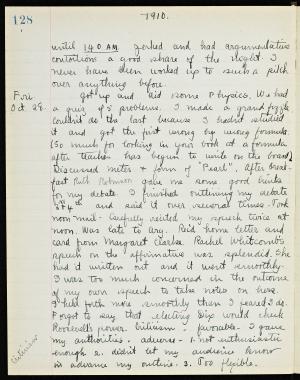 128
1910.
until 1 4 0 A.M. Jerked and had argumentative
contortions a good share of the night. I
never have been worked up to such a pitch
over anything before.
Fri.
Oct 28.
Got up and did some Physics. We had
a quiz of 5 problems. I made a grand fizzle
couldn't do the last because I hadn't studied
it and got the first wrong by wrong formula.
(So much for looking in your book at a formula
after teacher has begun to write on the board)
Discussed meter + form of "Pearl". After break-
fast Ruth Robinson gave me some good hints
for my debate. I finished outlining my debate
and said it over several times. Took
noon mail. Carefully recited my speech twice at
noon. Was late to Arg. Read home letter and
card from Margaret Clarke. Rachel Whitcomb's
speech on the affirmative was splendid. She
had it written out and it went smoothly.
I was too much concerned in the outcome
of my own speech to take notes on hers.
I held forth more smoothly than I feared I'd do.
Forgot to say that electing Dix would check
Roosevelt's power. Criticism - favorable. I gave
my authorities. adverse - 1. not enthusiastic
enough 2. didn't let my audience know
in advance my outline. 3. too flexible.
Criticism